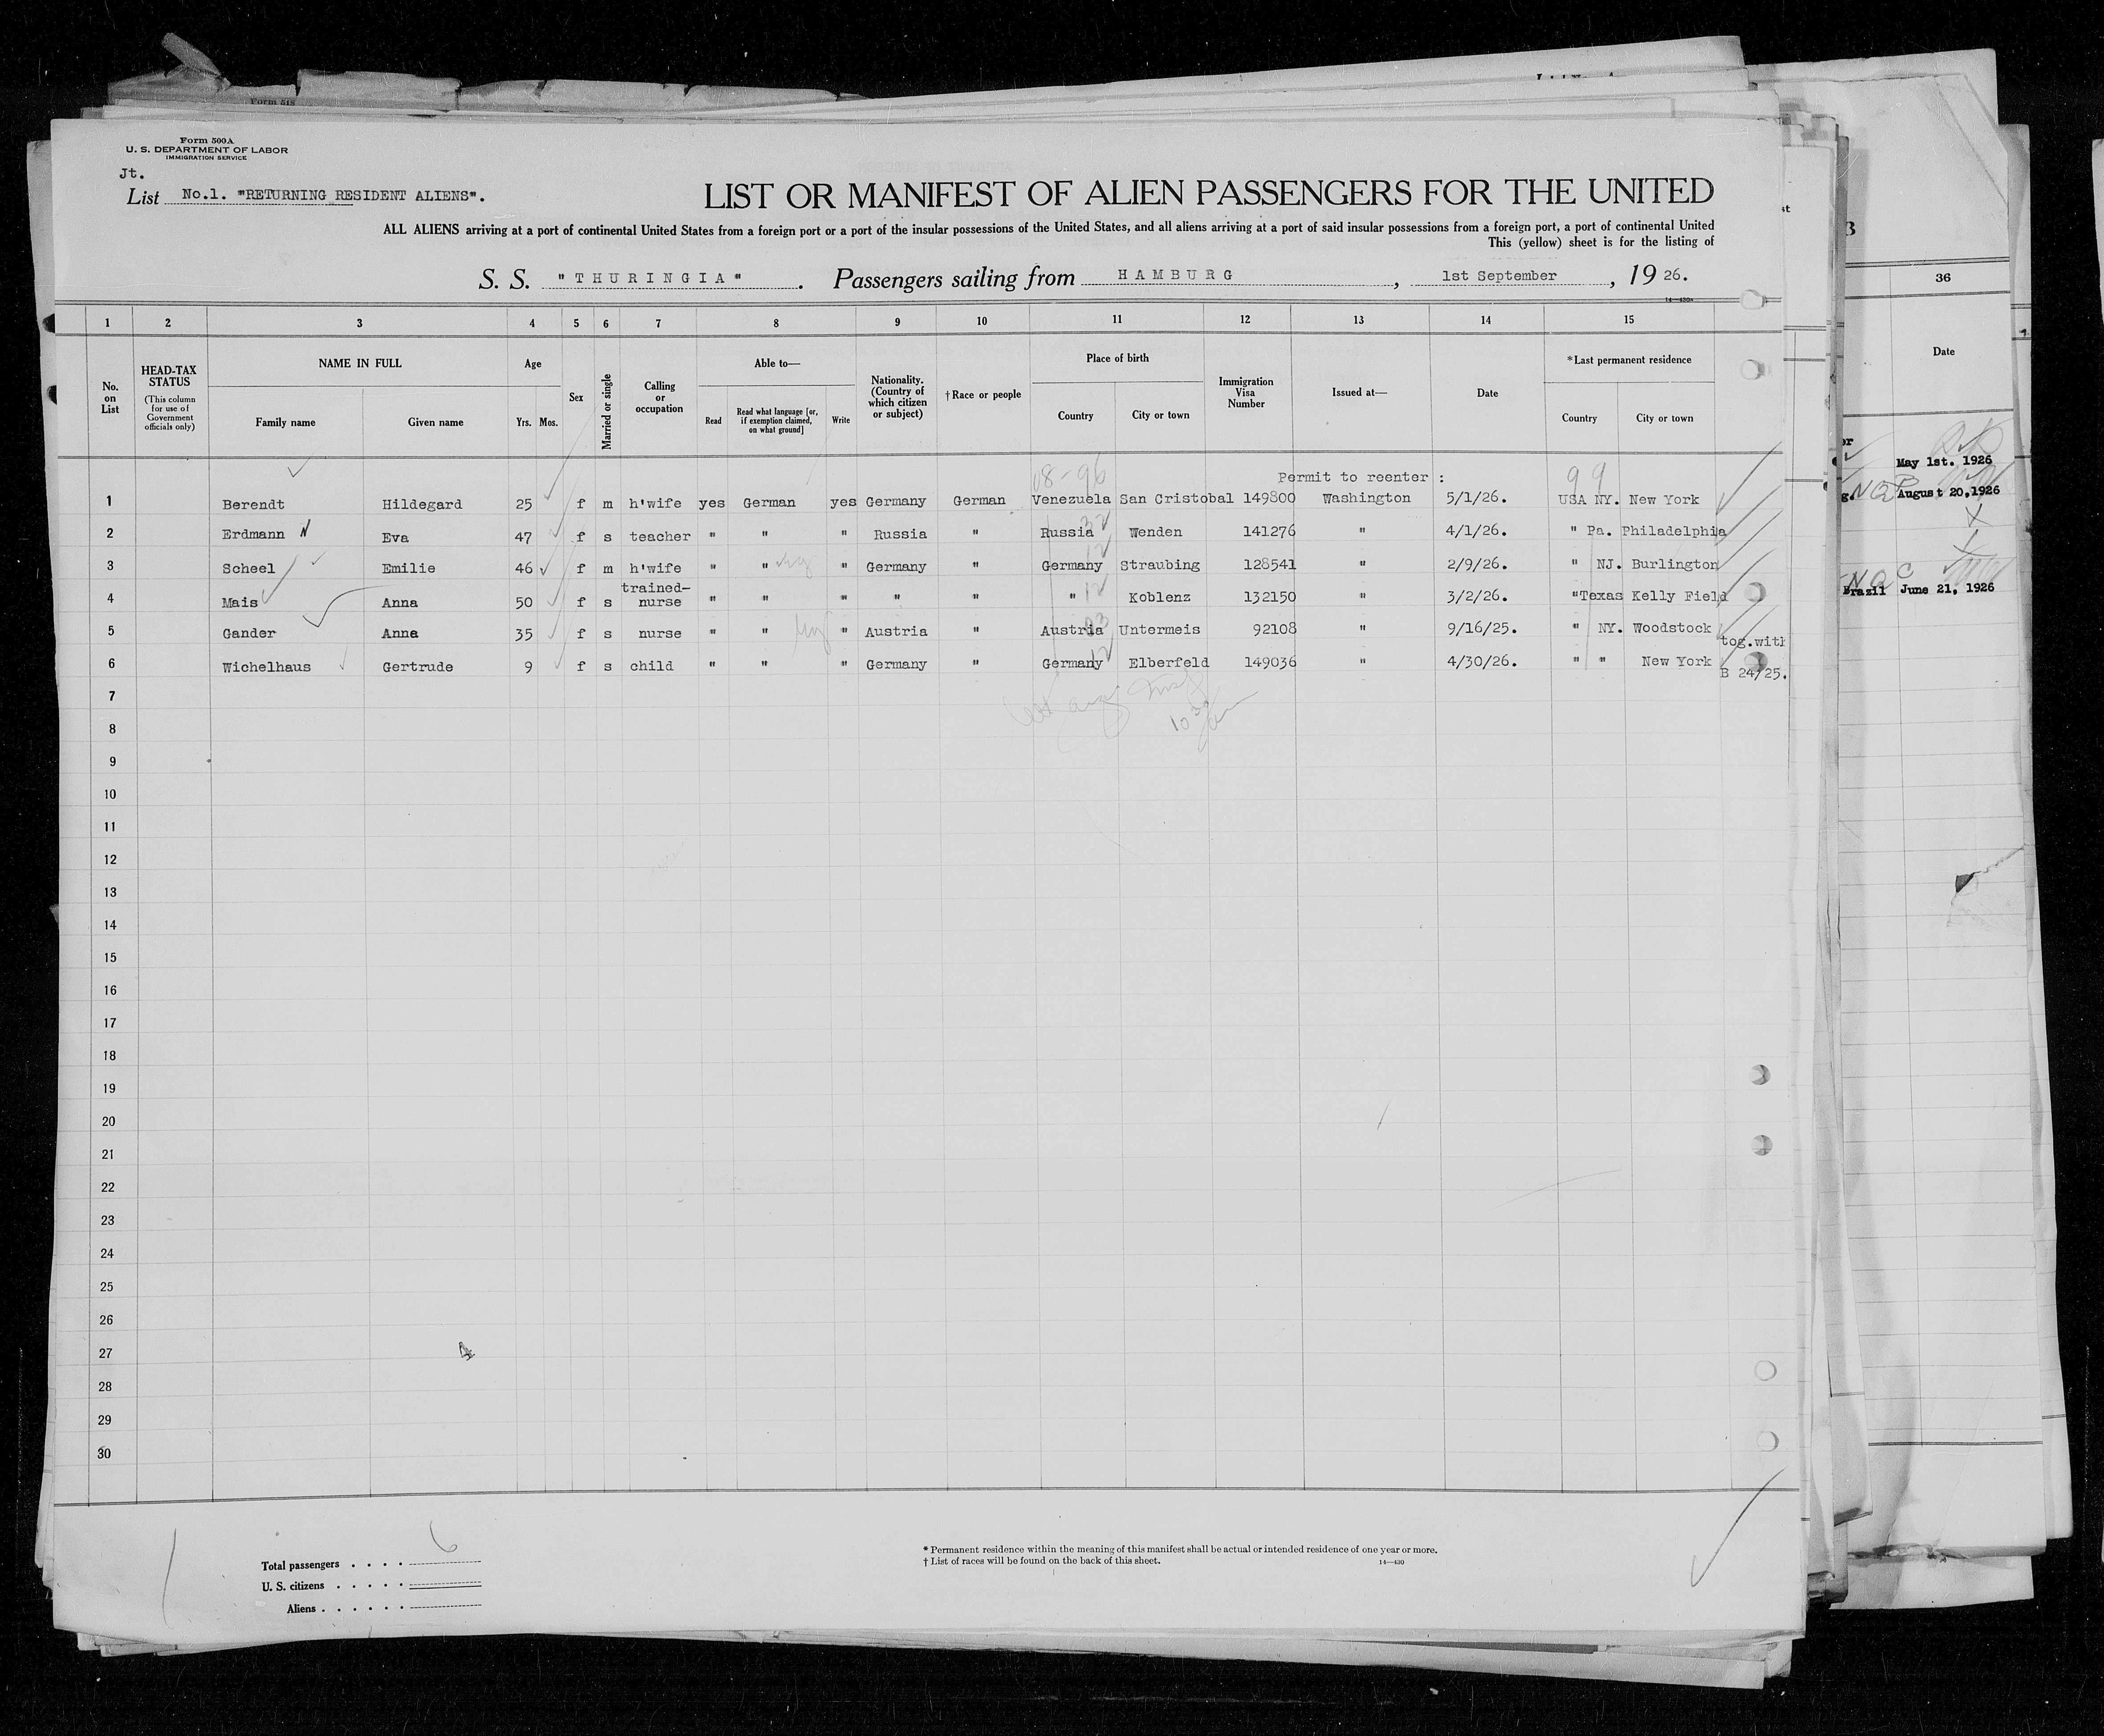 Form 500A
U. S. DEPARTMENT OF LABOR
IMMIGRATION SERVICE
Jt.
List No.1. "RETURNING RESIDENT ALIENS".
LIST OR MANIFEST OF ALIEN PASSENGERS FOR THE UNITED
ALL ALIENS arriving at a port of continental United States from a foreign port or a port of the insular possessions of the United States, and all aliens arriving at a port of said insular possessions from a foreign port, a port of continental United
This (yellow) sheet is for the listing of
S. S. "THURINGIA". Passengers sailing from HAMBURG, 1st September, 1926.
14—430a
1 2 3 4 5 6 7 8 9 10 11 12 13 14 15
No. on List
HEAD-TAX STATUS
(This column for use of Government officials only)
NAME IN FULL
Family name Given name
Age
Yrs. Mos.
Sex
Married or single
Calling or occupation
Able to—
Read
Read what language [or, if exemption claimed, on what ground]
Write
Nationality. (Country of which citizen or subject)
†Race or people
Place of birth
Country City or town
Immigration Visa Number
Issued at—
Date
*Last permanent residence
Country City or town
08-96 Permit to reenter : 99
1 Berendt Hildegard 25 f m h'wife yes German yes Germany German Venezuela San Cristobal 149800 Washington 5/1/26. USA NY. New York
2 Erdmann Eva 47 f s teacher " " " Russia " Russia Wenden 141276 " 4/1/26. " Pa. Philadelphia
3 Scheel Emilie 46 f m h'wife " " " Germany " Germany Straubing 128541 " 2/9/26. " NJ. Burlington
4 Mais Anna 50 f s trained-nurse " " " " " " Koblenz 132150 " 3/2/26. "Texas Kelly Field
5 Gander Anna 35 f s nurse " " " Austria " Austria Untermeis 92108 " 9/16/25. " NY. Woodstock
tog.with
6 Wichelhaus Gertrude 9 f s child " " " Germany " Germany Elberfeld 149036 " 4/30/26. " " New York
B 24/25.
7
8
9
10
11
12
13
14
15
16
17
18
19
20
21
22
23
24
25
26
27
28
29
30
Total passengers . . . . 6
U. S. citizens . . . . .
Aliens . . . . . .
* Permanent residence within the meaning of this manifest shall be actual or intended residence of one year or more.
† List of races will be found on the back of this sheet. 14—430
Form 518
36
Date
May 1st. 1926
August 20,1926
Brazil June 21, 1926